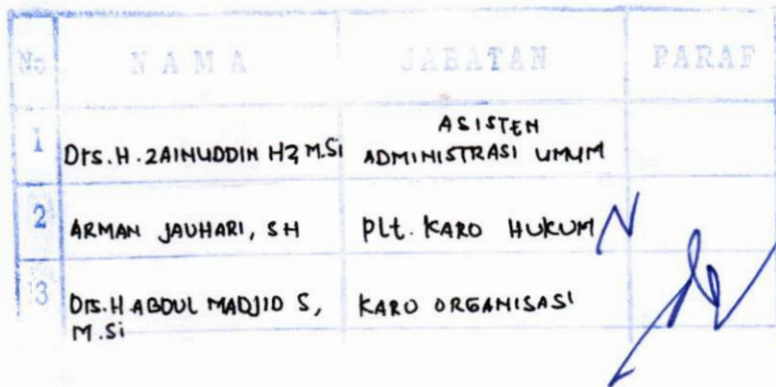 No NAMA JABATAN PARAF
1 Drs. H. ZAINUDDIN HZ, M.Si ASISTEN ADMINISTRASI UMUM
2 ARMAN JAUHARI, SH Plt. KARO HUKUM
3 Drs. H ABDUL MADJID S, M.Si KARO ORGANISASI